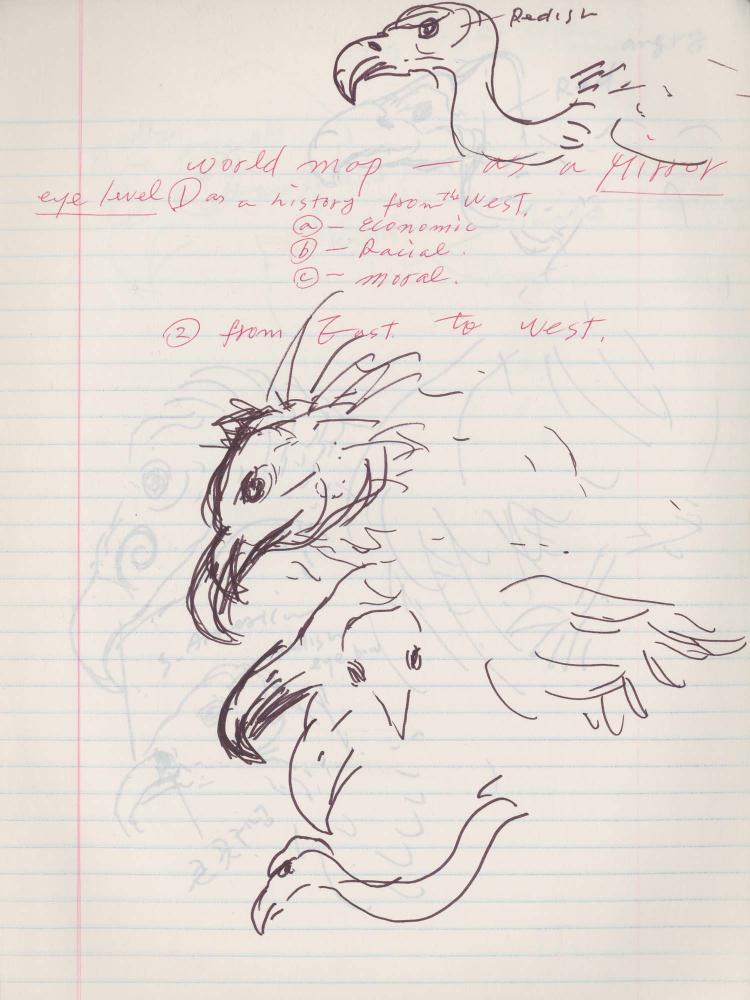 Redish
world map — as a Mirror
eye level ① as a history from the West.
ⓐ — Economic
ⓑ — Racial.
ⓒ — Moral.
② from East to West.
angry